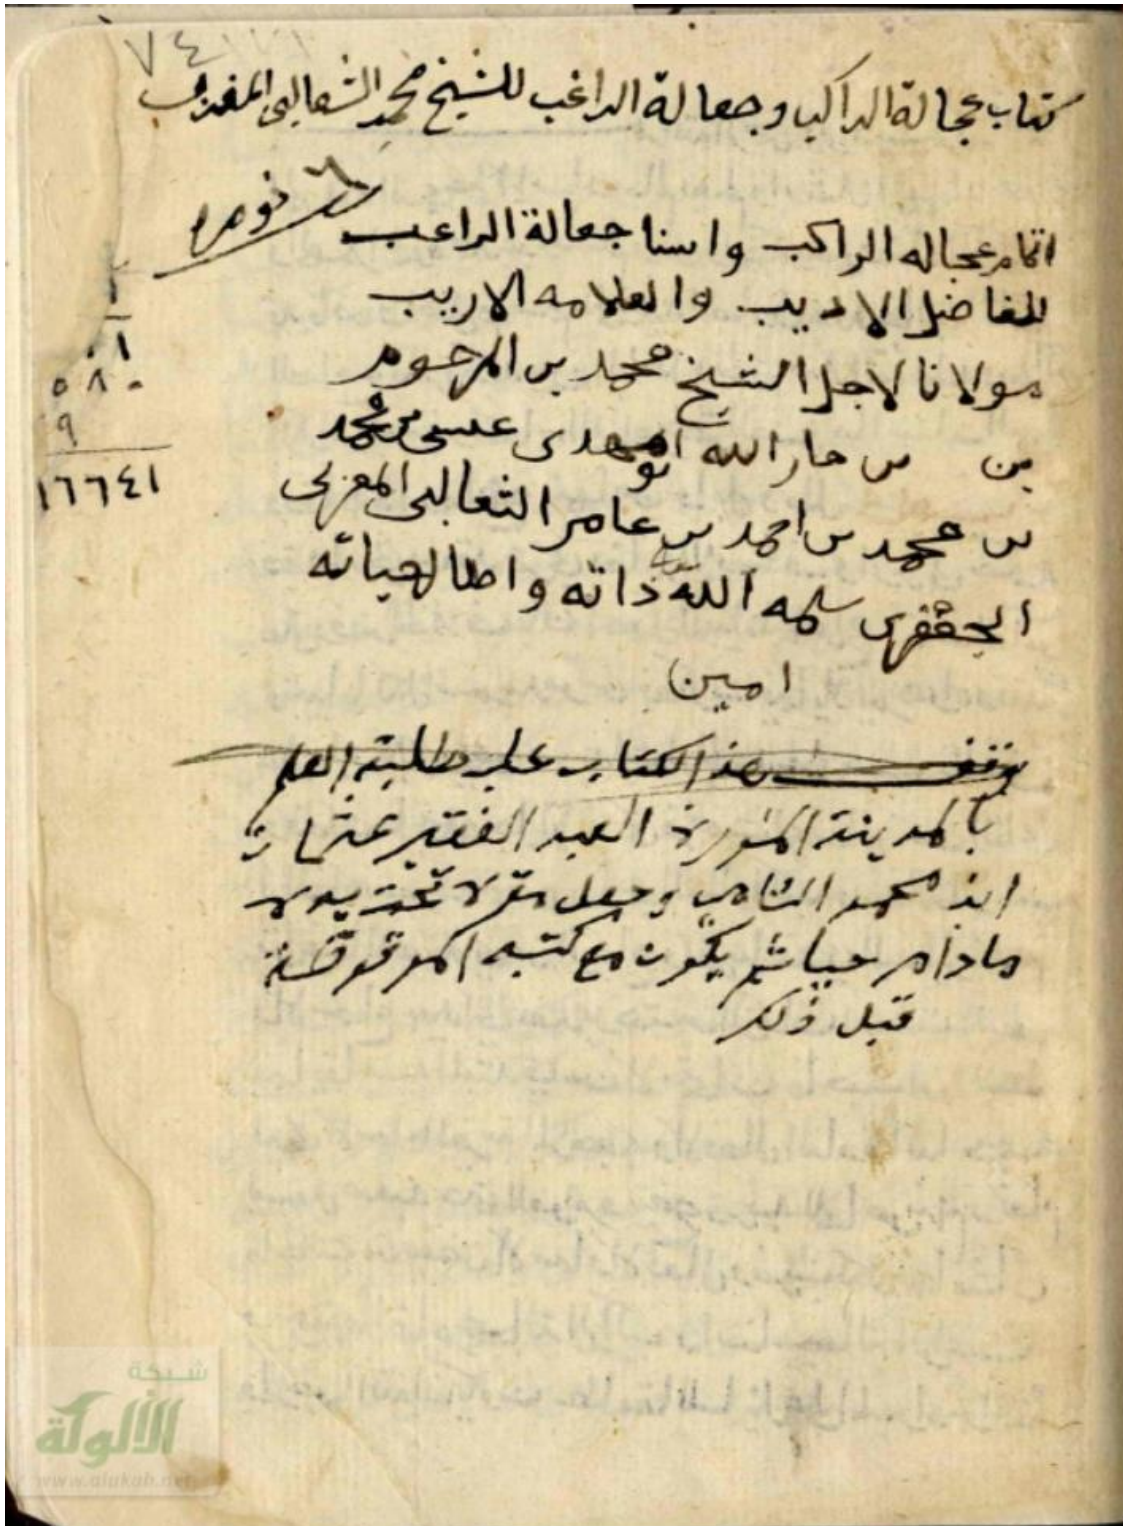 ٧٤
كتاب عجالة الراكب وجعالة الراغب للشيخ محمد الثعالبي المغربي
اتمام عجاله الراكب واسنا جعالة الراعب
للفاضل الاديب والعلامه الاريب
مولانا لاجل الشيخ محمد بن المرحوم
بن حار الله عيسى بن محمد
بن محمد بن احمد بن عامر الثعالبى المغربى
الجعفرى سلمه الله ذاته واطال حياته
امين
وقف هذا الكتاب على طلبة العلم
بالمدينة المنورة العبد الفقير عثمان
ابن محمد الشامي وجعل مقره تحت يده
مادام حيا ثم يكون مع كتبه الموقوفة
قبل ذلك
٥٨٠
٩
١٦٦٤١
شبكة
الألوكة
www.alukah.net